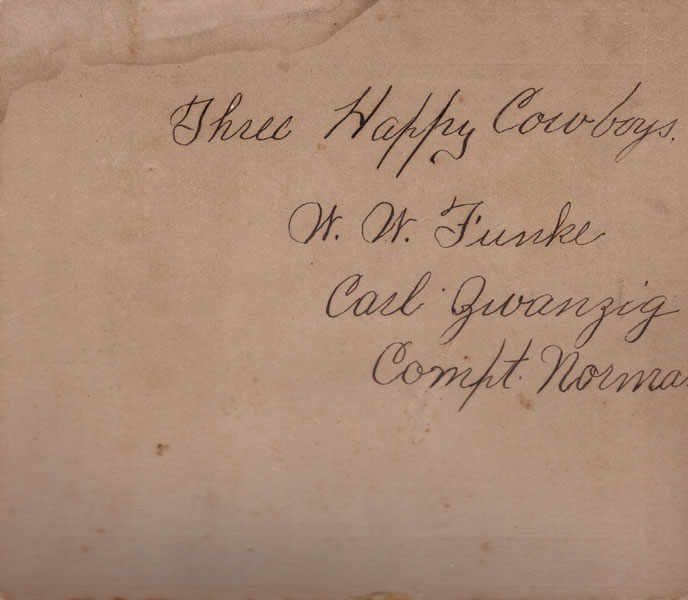 Three Happy Cowboys.
W. W. Funke
Carl Zwanzig
Compt. Norma